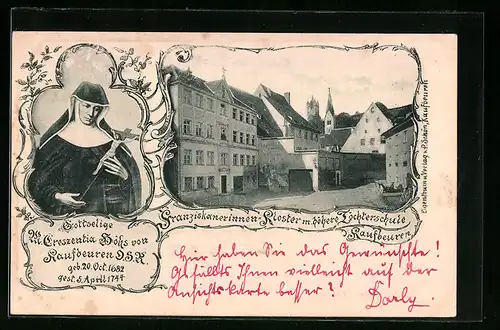 Gottselige
M. Crescentia Höhs von
Kaufbeuren O.S.F.
geb. 20. Oct. 1682
gest. 5. April 1744
Franziskanerinnen-Kloster m. höhere Töchterschule
Kaufbeuren
Eigenthum u. Verlag v. P. Schön, Kaufbeuren
Hier haben Sie das Gewünschte!
Gefällts Ihnen vielleicht auf der
Ansichtskarte besser?